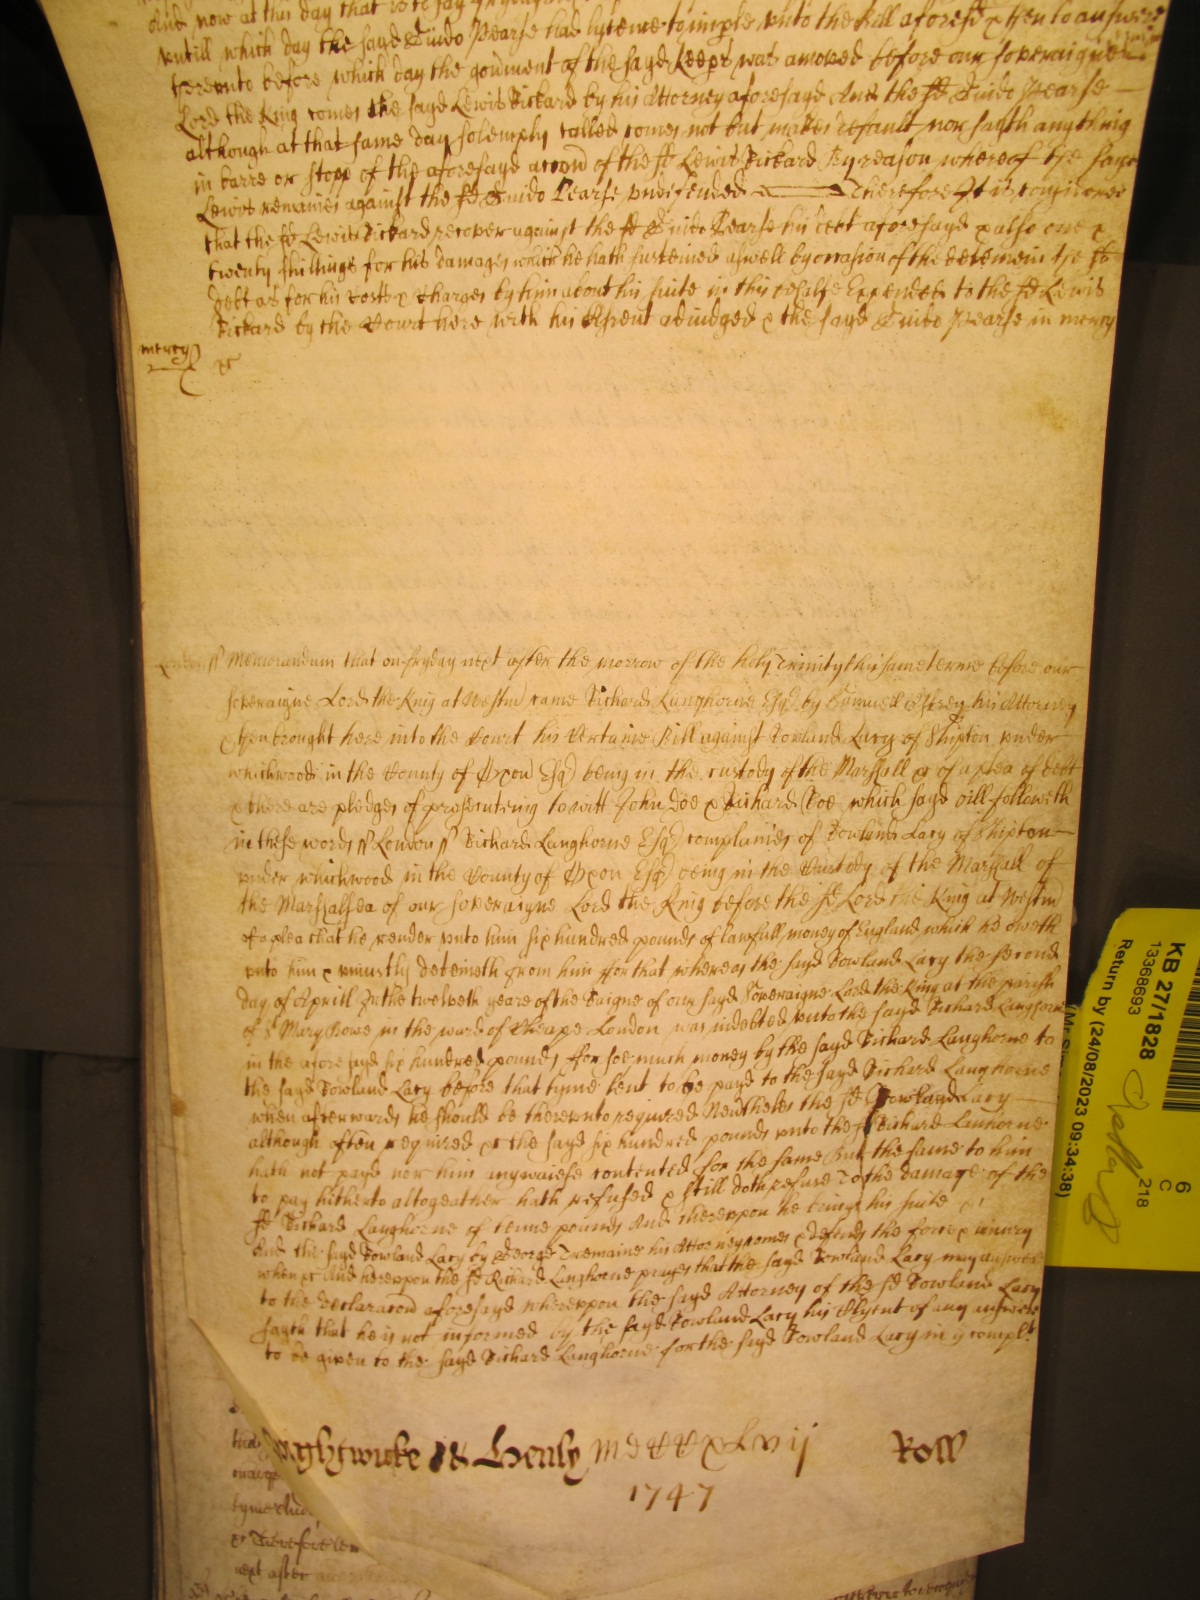 And now at this day that is to say
untill which day the sayd Guido Pearse had lycence to imple unto the Bill aforesd & then to answere
thereunto before which day the goverment of the sayd Keeprs was amoved before our soveraigne
Lord the King comes the sayd Lewis Rickard by his Attorney aforesayd And the sd Guido Pearse
although at that same day solemply called comes not but makes default nor sayth anything
in barre or stopp of the aforesayd accon of the sd Lewis Rickard By reason whereof the sayd
Lewis remaines against the sd Guido Pearse undefended Therefore It is considered
that the sd Lewis Rickard recover against the sd Guido Pearse his debt aforesayd & also one &
twenty shillings for his damages which he hath susteined aswell by occasion of the deteineing the sd
debt as for his Costs & Charges by him about his suite in this behalfe Expended to the sd Lewis
Rickard by the Court here with his Assent adiudged & the sayd Guido Pearse in mercy
mercy
&c
London ss Memorandum that on fryday next after the morrow of the holy Trinity this same terme before our
soveraigne Lord the King at Westm came Richard Langhorne Esqr by Samuell Astrey his Attorney
& then brought here into the Court his Certaine Bill against Rowland Lacy of Shipton under
whichwood in the County of Oxon Esqr being in the custody of the Marshall &c of a plea of debt
& there are pledges of prosecuteing to witt John Doe & Richard Roe which sayd bill followeth
in these words ss London ss Richard Langhorne Esqr complaines of Rowland Lacy of Shipton
under whichwood in the County of Oxon Esqr being in the Custody of the Marshall of
the Marshalsea of our soveraigne Lord the King before the sd Lord the King at Westm
of a plea that he render unto him six hundred pounds of lawfull money of England which he oweth
unto him & uniustly deteineth from him ffor that whereas the sayd Rowland Lacy the second
day of Aprill In the twelveth yeare of the Raigne of our sayd Soveraigne Lord the King at the parish
of St Mary Bowe in the ward of Cheape London was indebted unto the sayd Richard Langhorne
in the aforesayd six hundred pounds ffor soe much money by the sayd Richard Langhorne to
the sayd Rowland Lacy before that tyme lent to be payd to the sayd Richard Langhorne
when afterwards he should be thereunto required Neutheles the sd Rowland Lacy
although often required &c the sayd six hundred pounds unto the sd Richard Lanhorne
hath not payd nor him anywaiese contented for the same But the same to him
to pay hitherto altogeather hath refused & still doth refuse To the damage of the
sd Richard Langhorne of tenne pounds And thereupon he brings his suite &c
And the sayd Rowland Lacy by George Tremaine his Attorney comes & defends the force & iniury
when &c And hereupon the sd Richard Langhorne prayes that the sayd Rowland Lacy may answere
to the declaracon aforesayd whereupon the sayd Attorney of the sd Rowland Lacy
sayth that he is not informed by the sayd Rowland Lacy his Clyent of any answere
to be given to the sayd Richard Langhorne for the sayd Rowland Lacy in ye complt
ightwicke & Henly MDCCXLvij Roll
1747
tyme
&c Therefore
next after
KB 27/1828
13368693
Return by (24/08/2023 09:34:38)
6
C
218